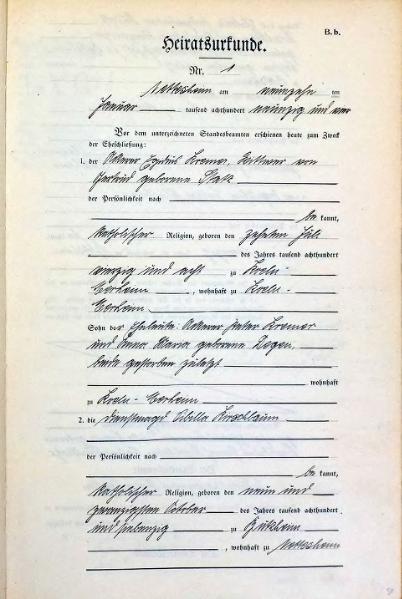 B. b.
Heiratsurkunde.
Nr. 1
Nettesheim am neunzehn ten
Januar tausend achthundert neunzig und vier
Vor dem unterzeichneten Standesbeamten erschienen heute zum Zweck
der Eheschließung:
1. der Ackerer Egidius Kremer, Wittwer von
Gertrud geborene
der Persönlichkeit nach
be kannt,
katholischer Religion, geboren den zehnten Juli
des Jahres tausend achthundert
vierzig und acht zu
, wohnhaft zu
Sohn der Eheleute: Ackerer Peter Kremer
und Anna Maria geborene
beide gestorben zuletzt
wohnhaft
zu
2. die Dienstmagd Sibella Kirschbaum
der Persönlichkeit nach
be kannt,
katholischer Religion, geboren den neun und
zwanzigsten October des Jahres tausend achthundert
und siebenzig zu
, wohnhaft zu Nettesheim